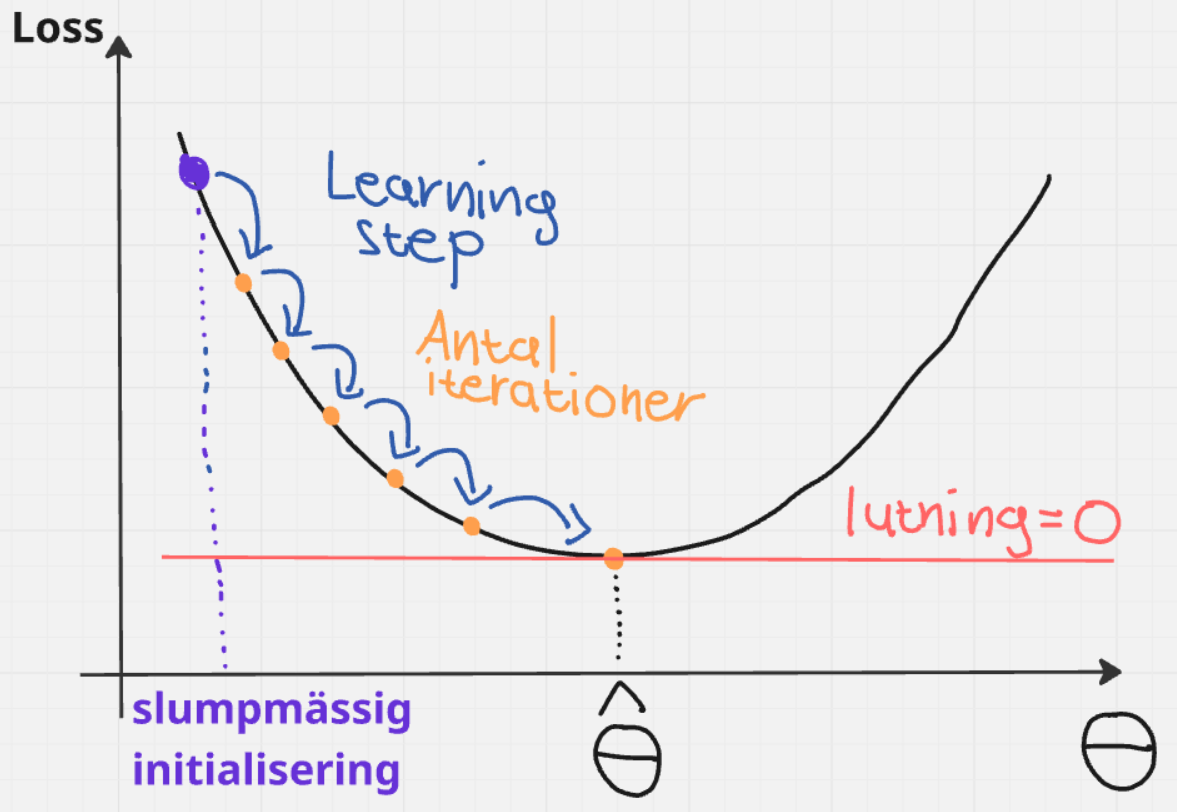 Loss
Learning
step
Antal
iterationer
lutning=0
slumpmässig
initialisering
θ̂
θ